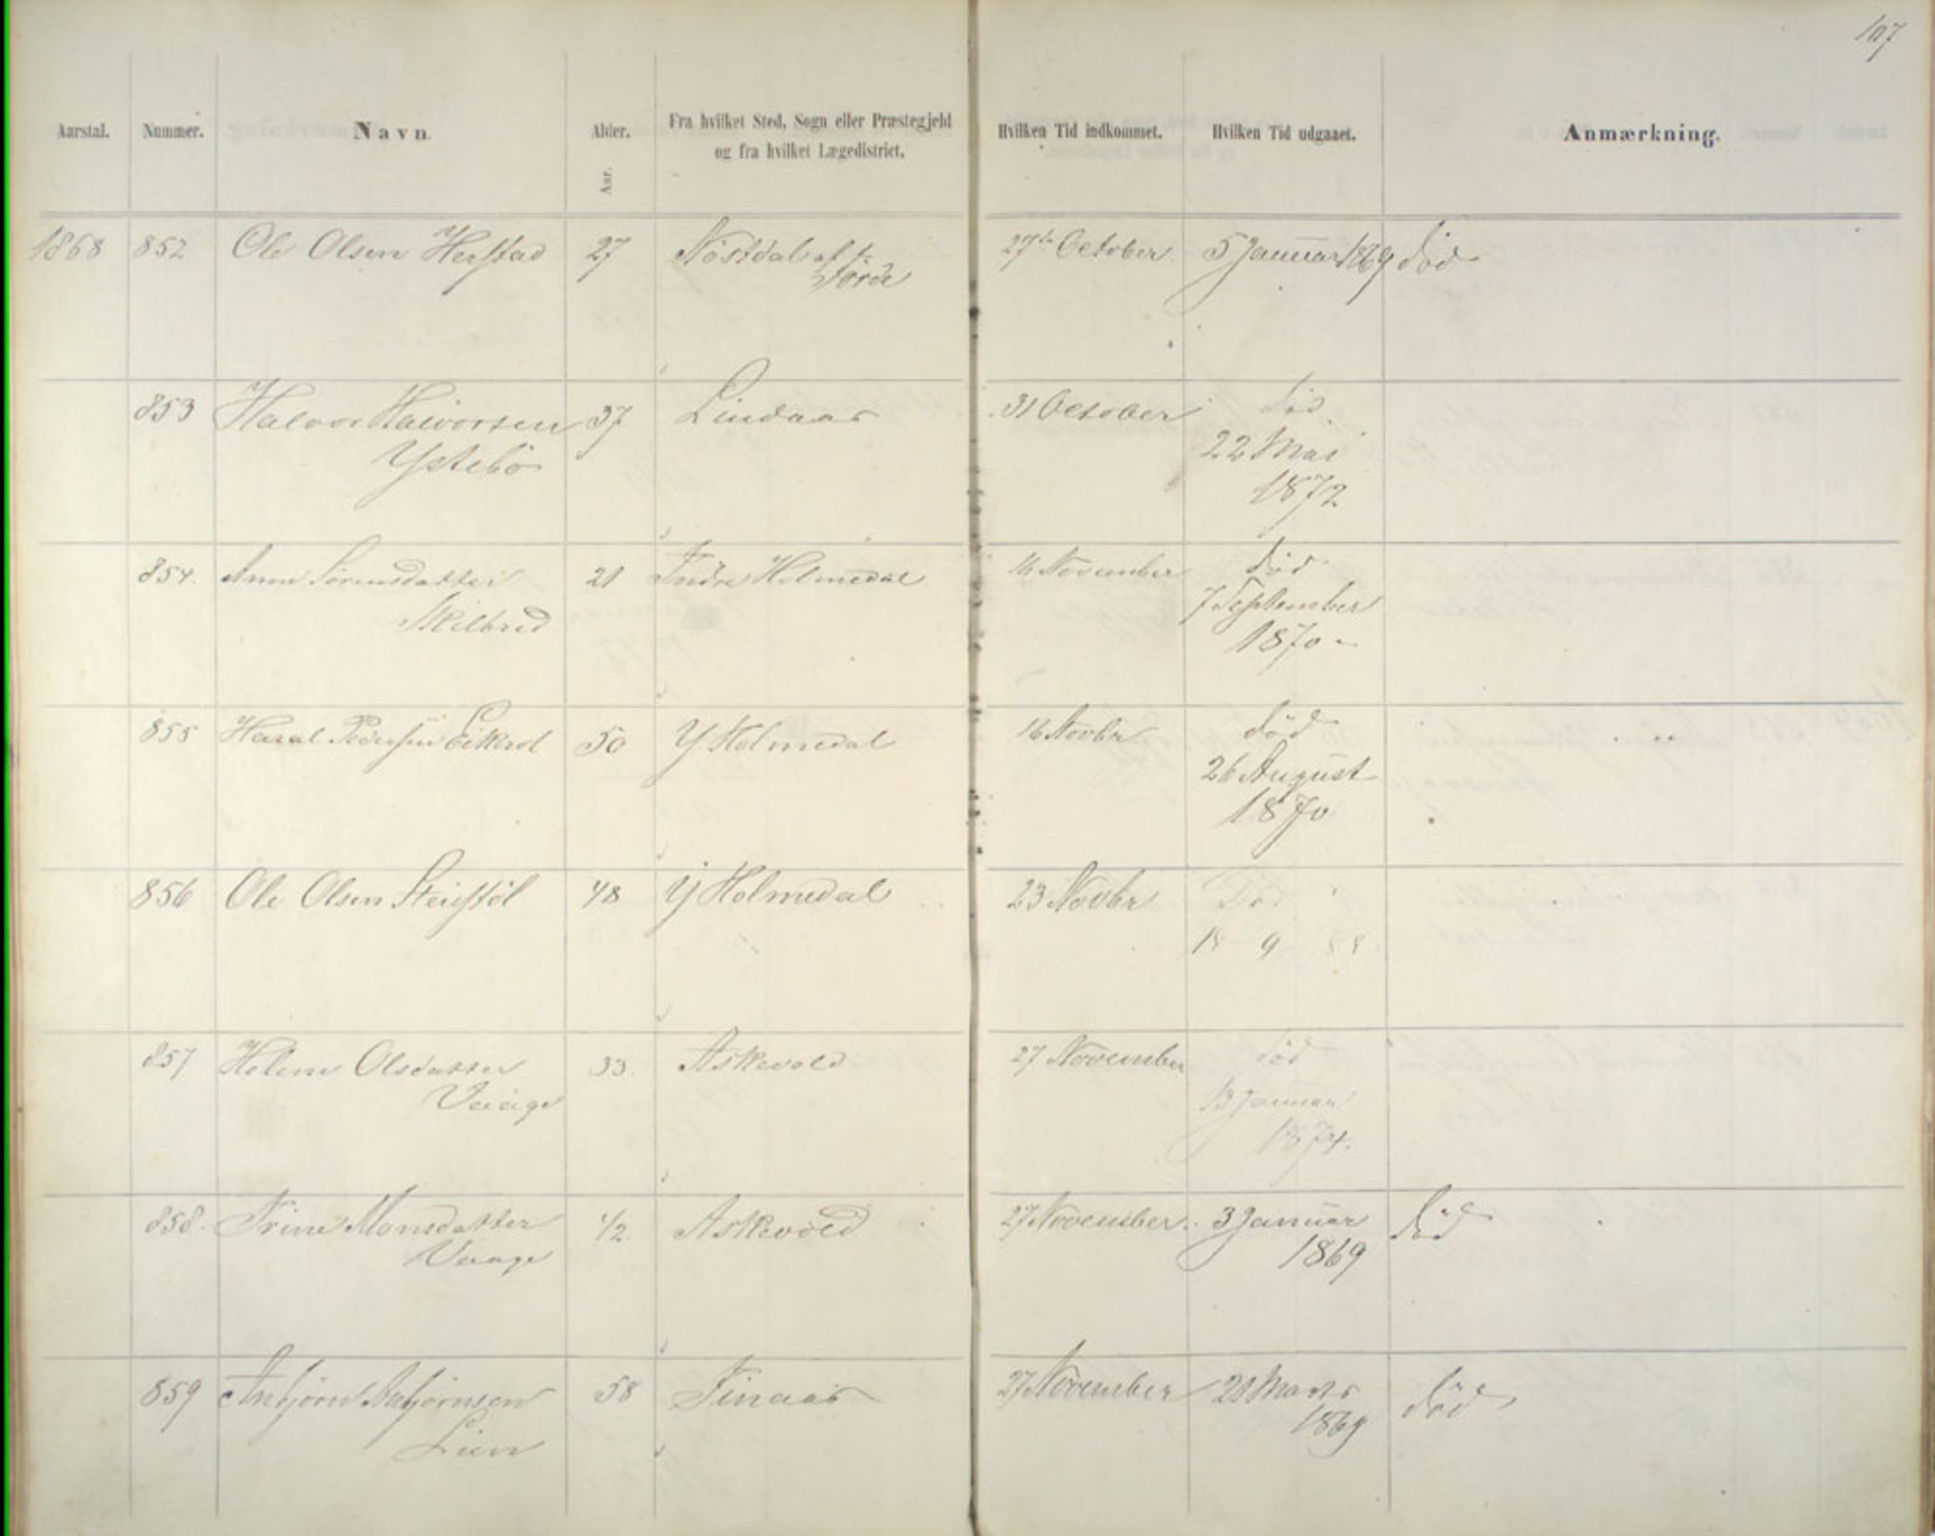 107
Aarstal. Nummer. Navn. Alder. Fra hvilket Sted, Sogn eller Præstegjeld Hvilken Tid indkommet. Hvilken Tid udgaaet. Anmærkning.
og fra hvilket Lægedistrict.
Aar.
1868 852 Ole Olsen Herstad 27 27de October 5 Januar 1869 död
Förde
853 Halvor Halvorsen 37 Lindaas 31 October död
Ystebö 22 Mai
1872
854. Anne Sörensdatter 21 Indre Holmedal 16 November död
Skilbred 7 September
1870
855 Pedersen 50 Y Holmedal 16 Novbr död
26 August
1870
856 Ole Olsen 48 Y Holmedal 23 Novbr Död
18 9 88
857 Helene Olsdatter 33. Askevold 27 November död
13 Januar
1874.
858. Trine Monsdatter 42 Askevold 27 November. 3 Januar död
Vaage 1869
859 Anbjörn Anbjörnsen 58 Finaas 27 November 28 Marts död
Lien 1869